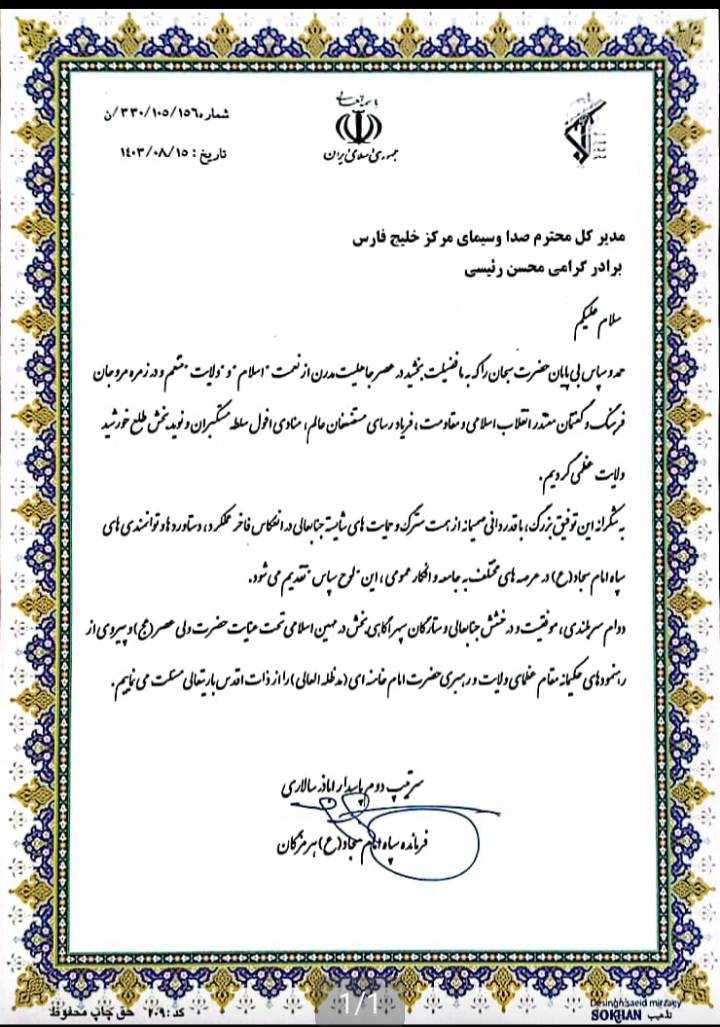 باسمه تعالی
جمهوری اسلامی ایران
شماره۳۳۰/۱۰۵/۱۵۶/ن
تاریخ : ۱۴۰۳/۰۸/۱۵
مدیر کل محترم صدا وسیمای مرکز خلیج فارس
برادر گرامی محسن رئیسی
سلام علیکم
حمد و سپاس بی پایان حضرت سبحان را که به ما فضیلت بخشید در عصر جاهلیت مدرن از نعمت "اسلام" و "ولایت" متنعم و در زمره مروجان
فرهنگ و گفتمان مقتدر انقلاب اسلامی و مقاومت، فریاد رسای مستضعفان عالم، منادی افول سلطه مستکبران و نوید بخش طلوع خورشید
ولایت عظمی گردیم.
به شکرانه این توفیق بزرگ، با قدردانی صمیمانه از همت سترگ و حمایت های شایسته جنابعالی در انعکاس فاخر عملکرد، دستاوردها و توانمندی های
سپاه امام سجاد(ع) در عرصه های مختلف به جامعه و افکار عمومی، این "لوح سپاس" تقدیم می شود.
دوام سربلندی، موفقیت و درخشش جنابعالی و ستارگان سپهر آگاهی بخش در میهن اسلامی تحت عنایت حضرت ولی عصر(عج) و پیروی از
رهنمودهای حکیمانه مقام عظمای ولایت و رهبری حضرت امام خامنه ای (مدظله العالی) را از ذات اقدس باریتعالی مسئلت می نماییم.
سرتیپ دوم پاسدار اباذر سالاری
فرمانده سپاه امام سجاد(ع) هرمزگان
1/1
کد: ۲۰۹ حق چاپ محفوظ
Desingh:saeid mirzaey
SOKHAN تذهیب